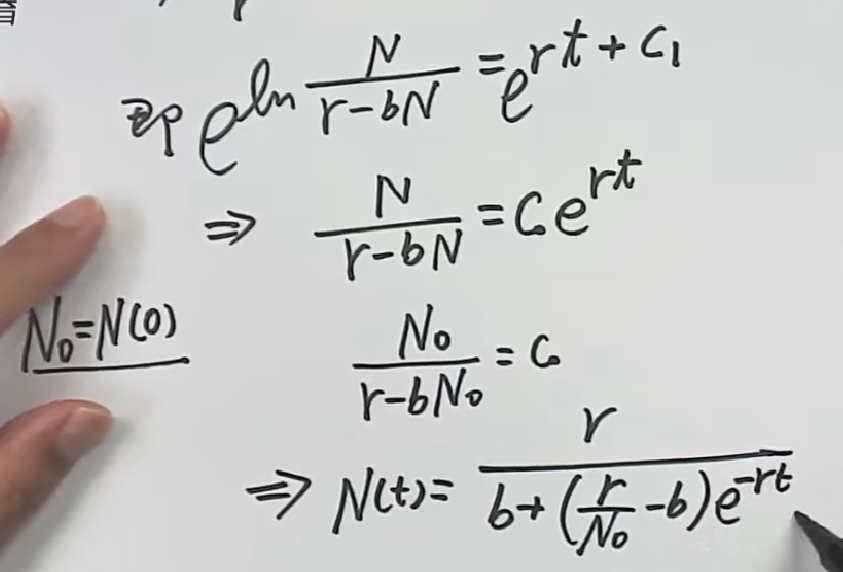 育
即 e^{ln \frac{N}{r-bN}} = e^{rt+c_1}
⇒ \frac{N}{r-bN} = Ce^{rt}
N_0=N(0)
\frac{N_0}{r-bN_0} = C
⇒ N(t)= \frac{r}{b+(\frac{r}{N_0}-b)e^{-rt}}